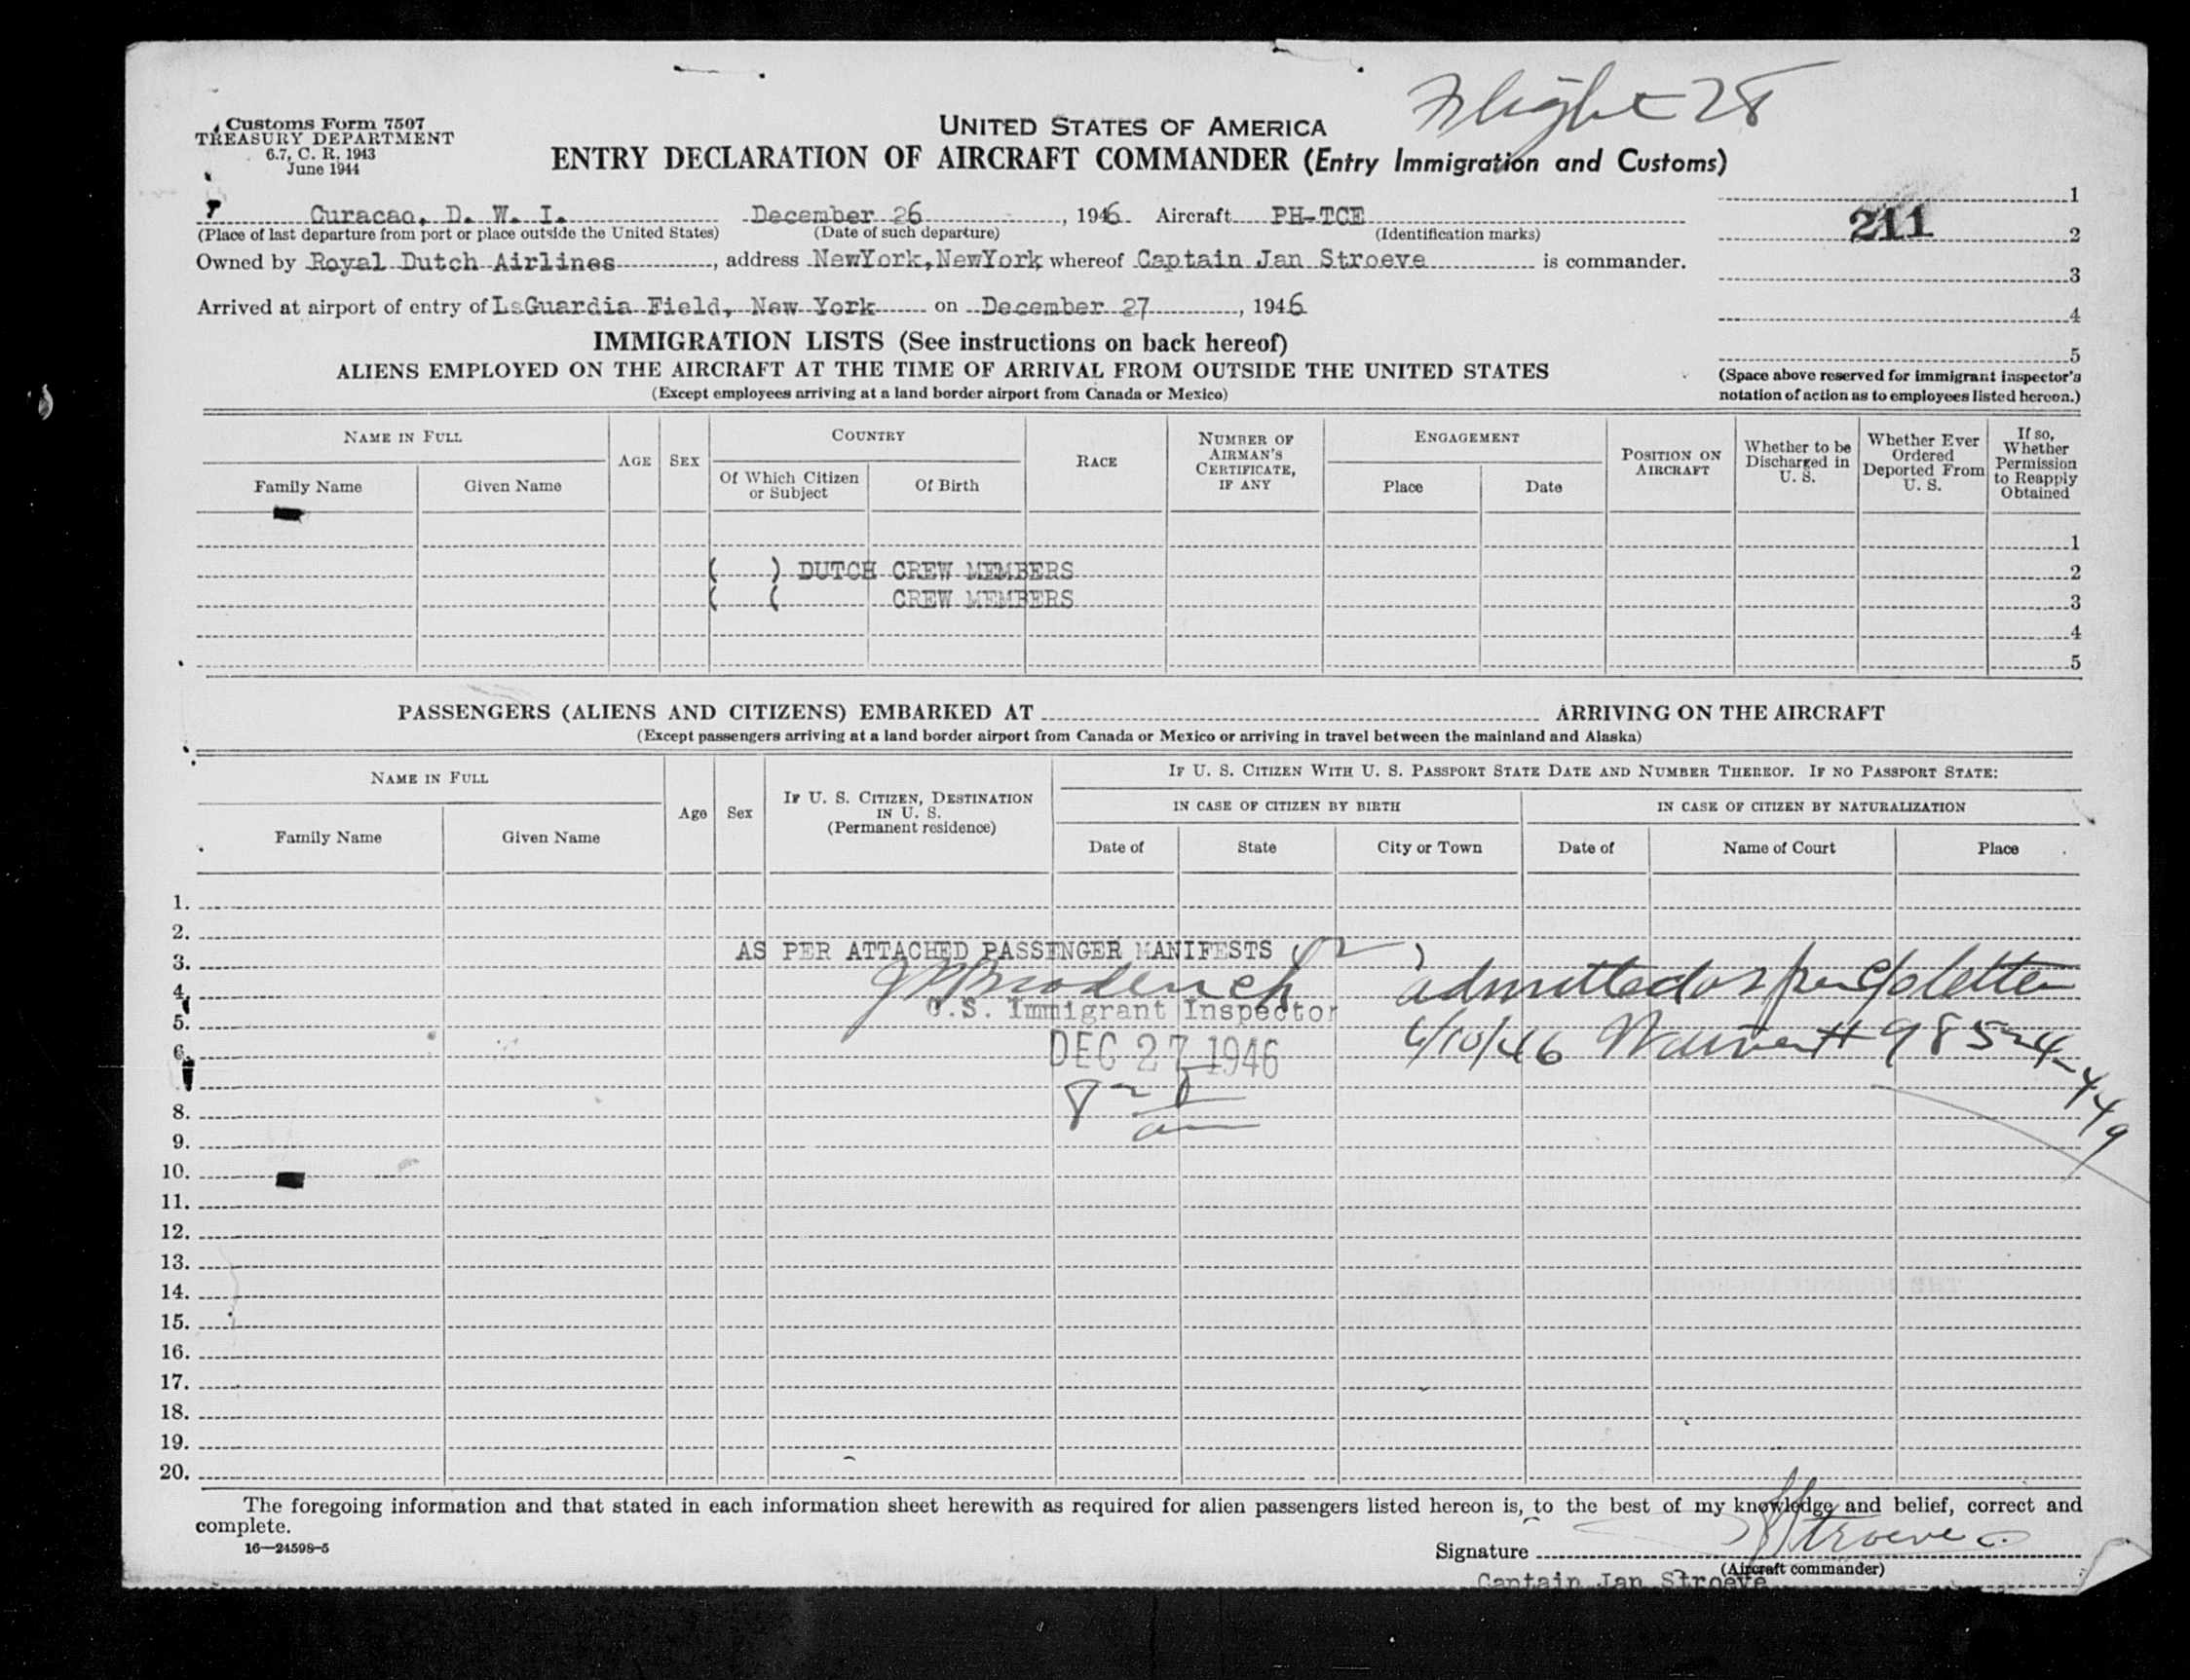 Flight 28
Customs Form 7507
TREASURY DEPARTMENT
6.7, C. R. 1943
June 1944
UNITED STATES OF AMERICA
ENTRY DECLARATION OF AIRCRAFT COMMANDER (Entry Immigration and Customs)
Curacao, D. W. I. December 26, 1946 Aircraft PH-TCE
(Place of last departure from port or place outside the United States) (Date of such departure) (Identification marks)
Owned by Royal Dutch Airlines, address NewYork,NewYork whereof Captain Jan Stroeve is commander.
Arrived at airport of entry of LaGuardia Field, New York on December 27, 1946
1
211 2
3
4
5
(Space above reserved for immigrant inspector's
notation of action as to employees listed hereon.)
IMMIGRATION LISTS (See instructions on back hereof)
ALIENS EMPLOYED ON THE AIRCRAFT AT THE TIME OF ARRIVAL FROM OUTSIDE THE UNITED STATES
(Except employees arriving at a land border airport from Canada or Mexico)
NAME IN FULL
Family Name
Given Name
AGE
SEX
COUNTRY
Of Which Citizen
or Subject
Of Birth
RACE
NUMBER OF
AIRMAN'S
CERTIFICATE,
IF ANY
ENGAGEMENT
Place
Date
POSITION ON
AIRCRAFT
Whether to be
Discharged in
U. S.
Whether Ever
Ordered
Deported From
U. S.
If so,
Whether
Permission
to Reapply
Obtained
1
( ) DUTCH CREW MEMBERS 2
( ( CREW MEMBERS 3
4
5
PASSENGERS (ALIENS AND CITIZENS) EMBARKED AT ARRIVING ON THE AIRCRAFT
(Except passengers arriving at a land border airport from Canada or Mexico or arriving in travel between the mainland and Alaska)
NAME IN FULL
Family Name
Given Name
Age
Sex
IF U. S. CITIZEN, DESTINATION
IN U. S.
(Permanent residence)
IF U. S. CITIZEN WITH U. S. PASSPORT STATE DATE AND NUMBER THEREOF. IF NO PASSPORT STATE:
IN CASE OF CITIZEN BY BIRTH
Date of
State
City or Town
IN CASE OF CITIZEN BY NATURALIZATION
Date of
Name of Court
Place
1.
2.
AS PER ATTACHED PASSENGER MANIFESTS ( )
3.
admitted as per letter
4.
U.S. Immigrant Inspector
5.
DEC 27 1946
6/10/46 98524-449
6.
am
8.
9.
10.
11.
12.
13.
14.
15.
16.
17.
18.
19.
20.
The foregoing information and that stated in each information sheet herewith as required for alien passengers listed hereon is, to the best of my knowledge and belief, correct and
complete.
16—24598-5
Signature J Stroeve
(Aircraft commander)
Captain Jan Stroeve